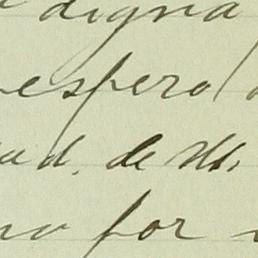 digna
espero
ad. de M.
no por